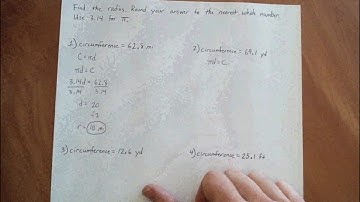 Find the radius. Round your answer to the nearest whole number.
Use 3.14 for π.
1) circumference = 62.8 mi
C = πd
πd = C
3.14d = 62.8
3.14 3.14
d = 20
÷2
r = 10 mi
2) circumference = 69.1 yd
πd = C
3) circumference = 12.6 yd
4) circumference = 25.1 ft